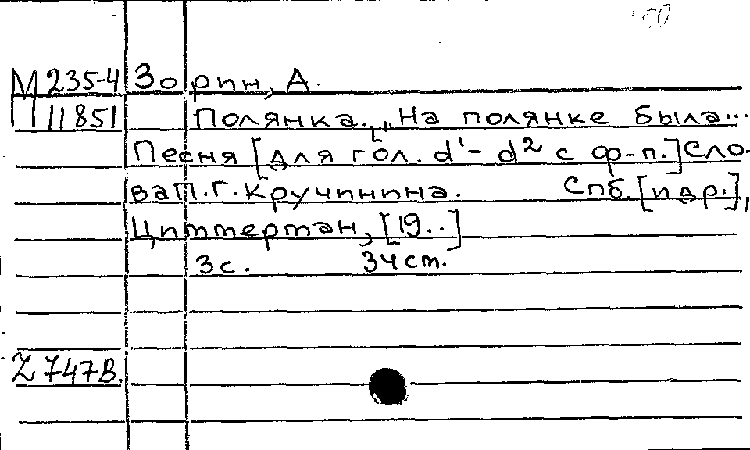 М 235-4 Зорин, А.
П 11851 Полянка. „На полянке была...
Песня [для гол. d¹- d² с ф-п.] Сло-
ва П.Г. Кручинина. Спб. [и др.],
Циммерман, [19..]
3 с. 34 cm.
Z 747 В.